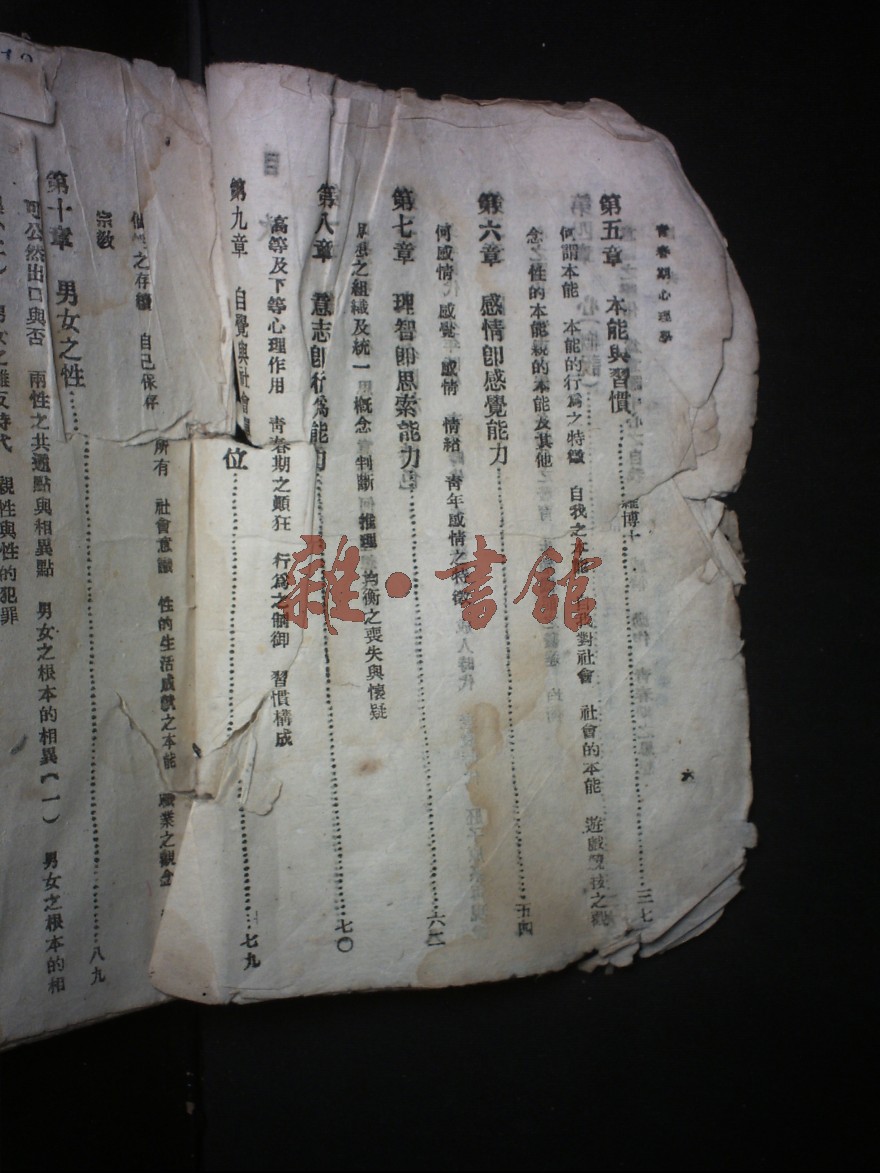 青春期心理學
第五章　本能與習慣……三七
何謂本能　本能的行爲之特徵　自我之本能　自我對社會　社會的本能　遊戲競技之觀
念之性的本能親的本能及其他
第六章　感情卽感覺能力……五四
何感情　感覺　感情　情緒　青年感情之特徵
第七章　理智卽思索能力……六二
思想之組織及統一　概念　判斷　推理　均衡之喪失與懷疑
第八章　意志卽行爲能力……七〇
高等及下等心理作用　青春期之顛狂　行爲之制御　習慣構成
第九章　自覺與社會　位……七九
之存續　自己保存　所有　社會意識　性的生活　之本能　職業之觀念
宗教
第十章　男女之性……八九
可公然出口與否　兩性之共通點與相異點　男女之根本的相異(一)　男女之根本的相
男女之離反時代　親性與性的犯罪
雜·書館